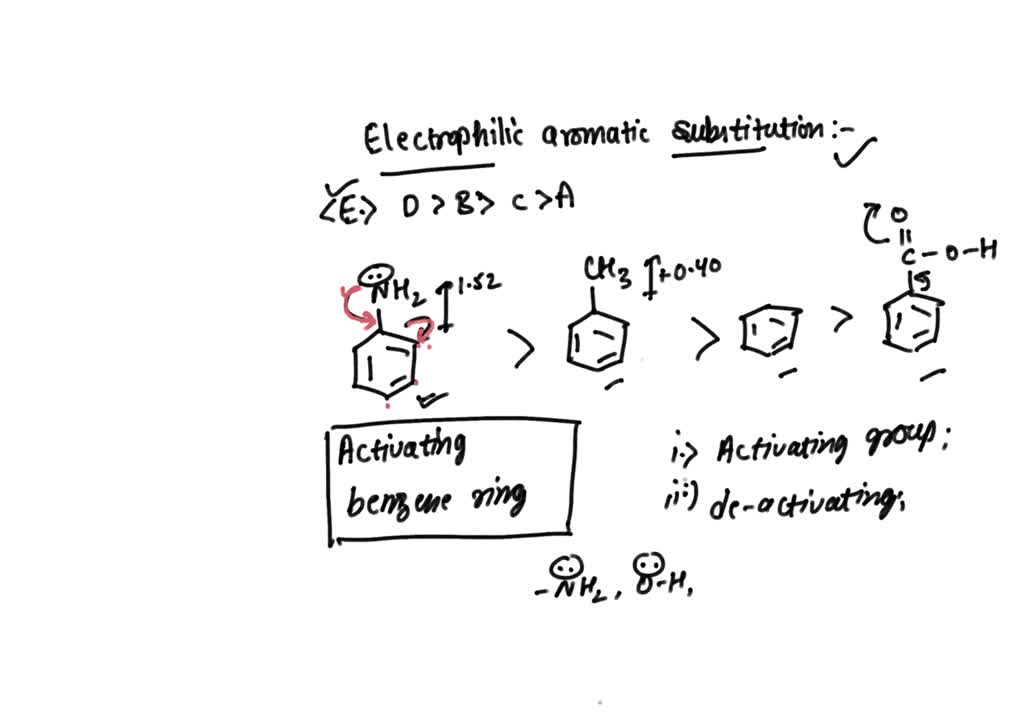 Electrophilic aromatic substitution:-
<E.> D > B > C > A
NH2 1.52
CH3 +0.40
O
C-O-H
> > >
Activating
benzene ring
i.> Activating group;
ii) de-activating;
-NH2, O-H,